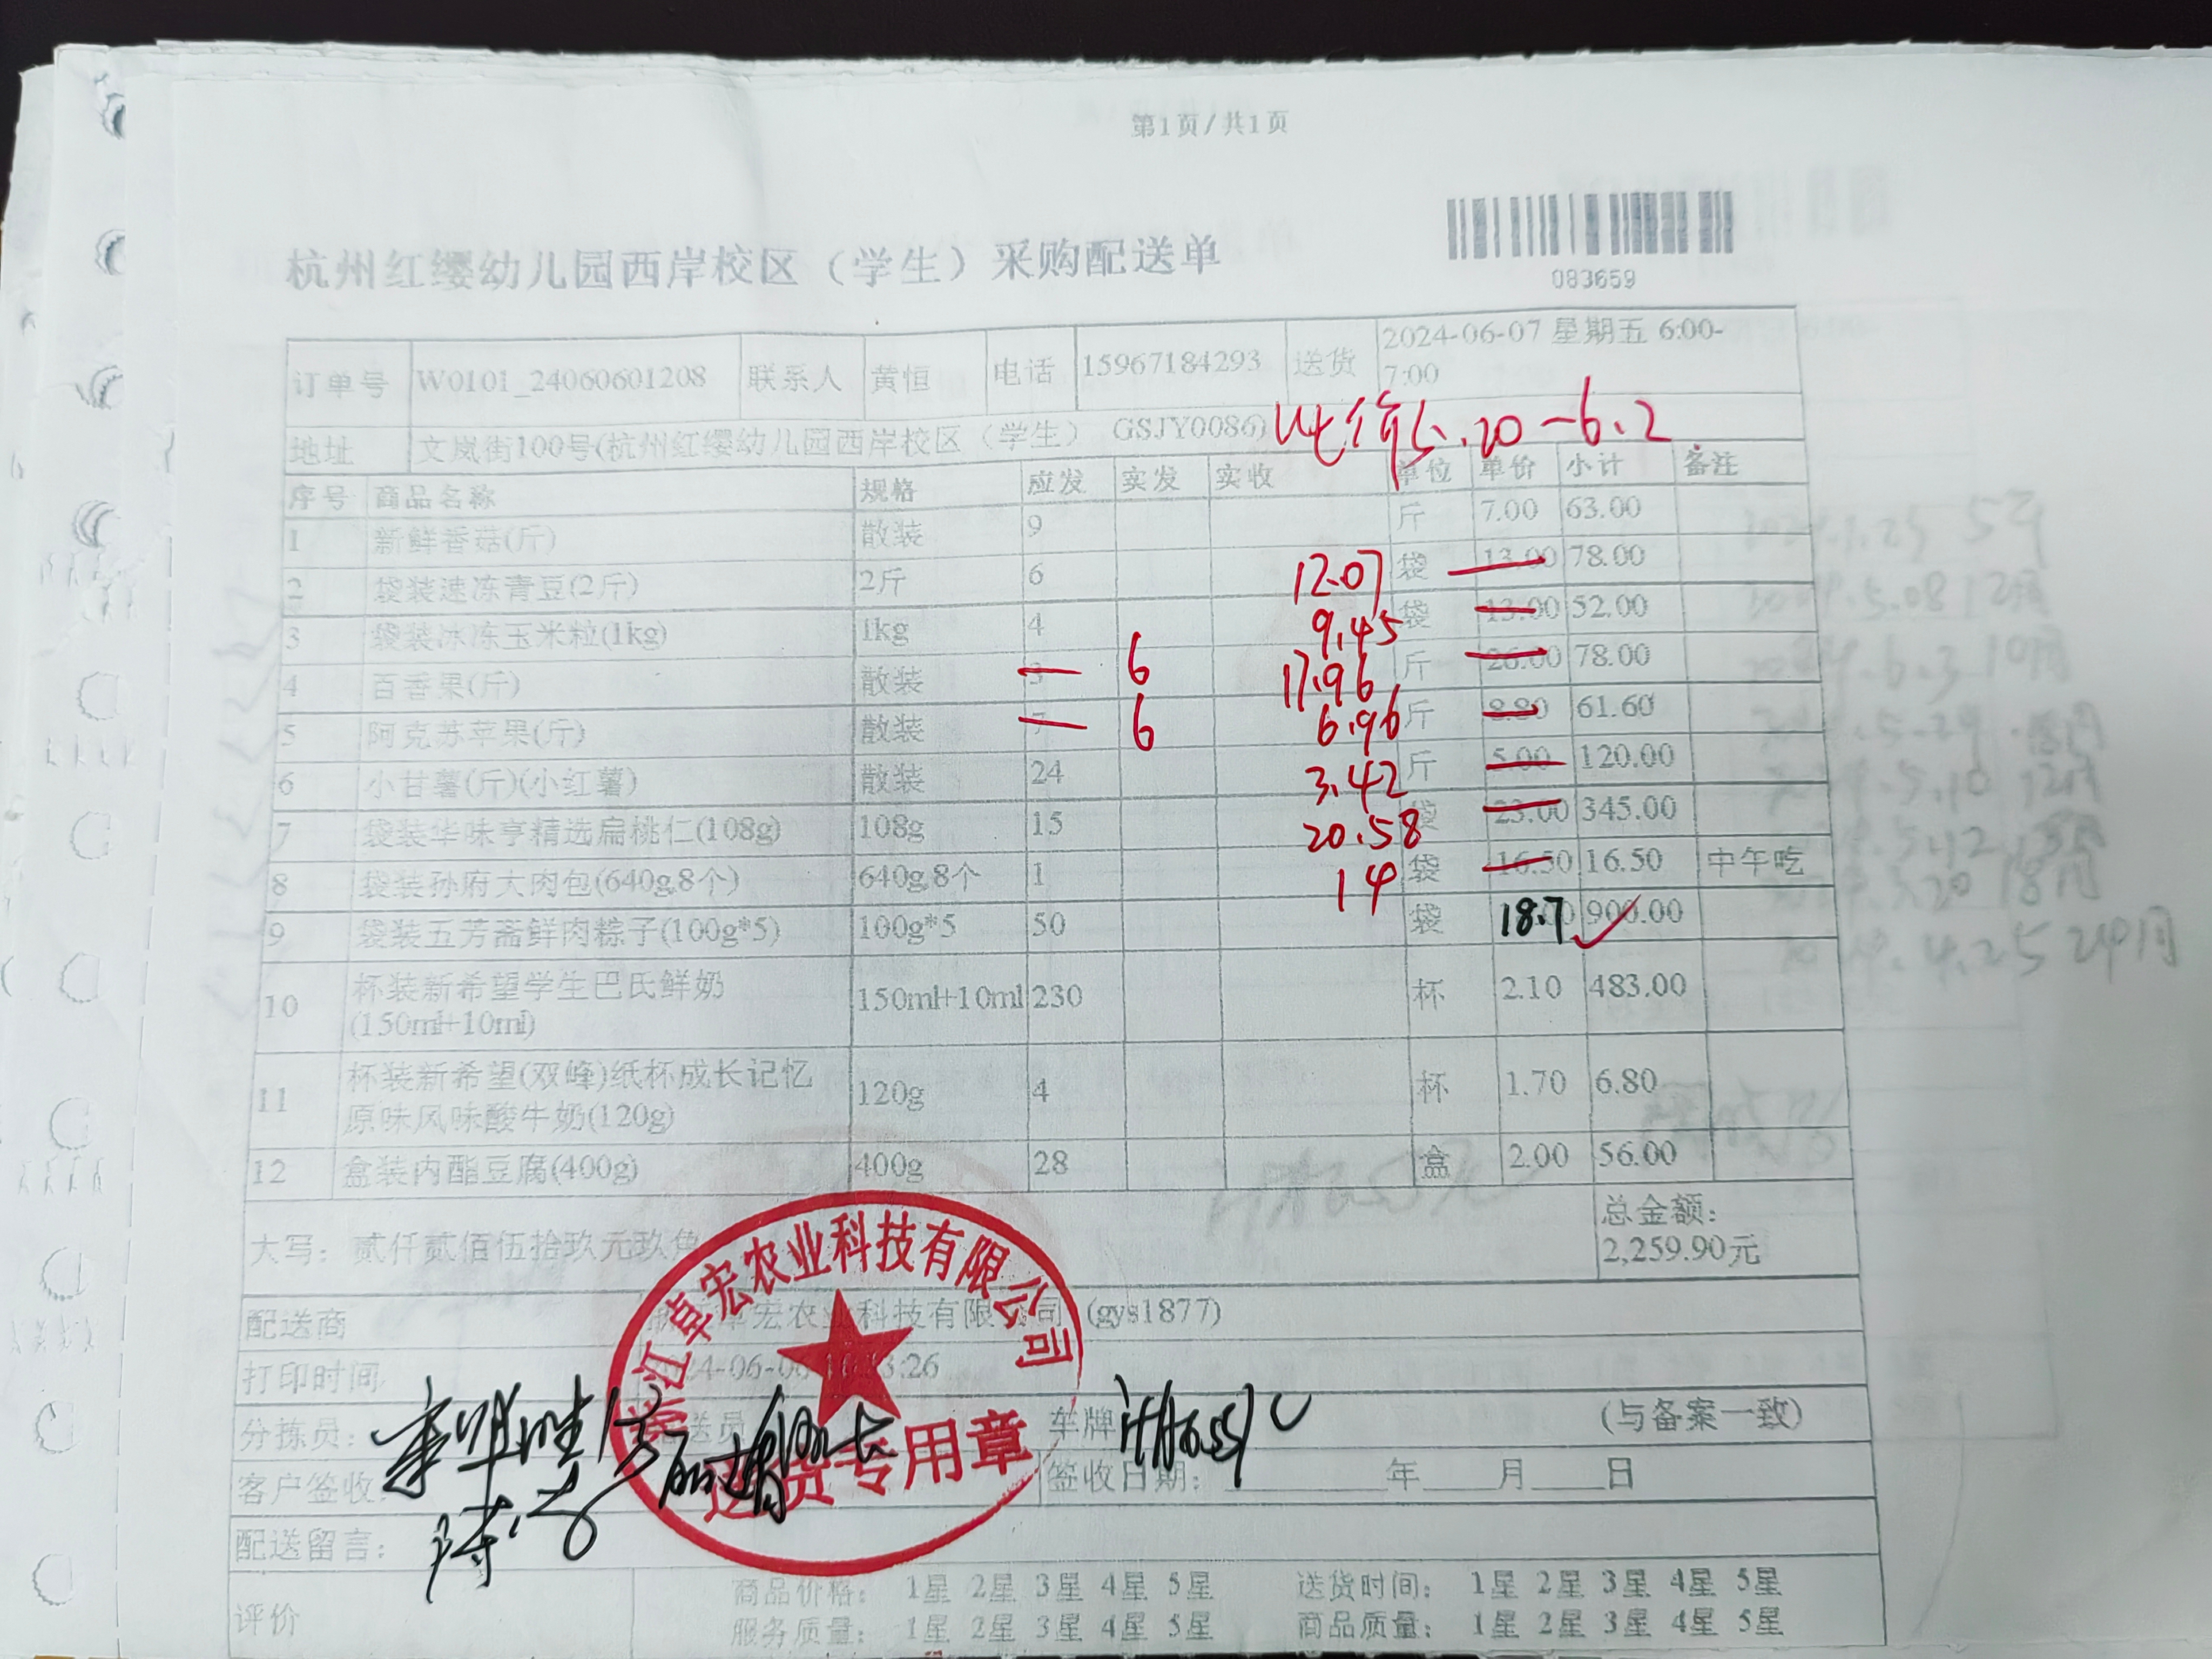 第1页/共1页
杭州红缨幼儿园西岸校区（学生）采购配送单
083659
订单号 W0101_24060601208 联系人 黄恒 电话 15967184293 送货 2024-06-07 星期五 6:00-
7:00
地址 文岚街100号(杭州红缨幼儿园西岸校区（学生） GSJY0086)
5.20-6.2
序号 商品名称 规格 应发 实发 实收 单位 单价 小计 备注
1 新鲜香菇(斤) 散装 9 斤 7.00 63.00
2 袋装速冻青豆(2斤) 2斤 6 12.07 袋 13.00 78.00
3 袋装冰冻玉米粒(1kg) 1kg 4 9.45 袋 13.00 52.00
4 百香果(斤) 散装 3 6 17.96 斤 26.00 78.00
5 阿克苏苹果(斤) 散装 7 6 6.96 斤 8.80 61.60
6 小甘薯(斤)(小红薯) 散装 24 3.42 斤 5.00 120.00
7 袋装华味亨精选扁桃仁(108g) 108g 15 20.58 袋 23.00 345.00
8 袋装孙府大肉包(640g,8个) 640g,8个 1 14 袋 16.50 16.50 中午吃
9 袋装五芳斋鲜肉粽子(100g*5) 100g*5 50 袋 18.7 900.00
10 杯装新希望学生巴氏鲜奶
(150ml+10ml) 150ml+10ml 230 杯 2.10 483.00
11 杯装新希望(双峰)纸杯成长记忆
原味风味酸牛奶(120g) 120g 4 杯 1.70 6.80
12 盒装内酯豆腐(400g) 400g 28 盒 2.00 56.00
大写：贰仟贰佰伍拾玖元玖角 总金额：
2,259.90元
配送商 浙江卓宏农业科技有限公司 (gys1877)
浙江卓宏农业科技有限公司
送货专用章
打印时间
分拣员： 配送员 车牌 (与备案一致)
客户签收： 签收日期： 年 月 日
配送留言：
评价 商品价格： 1星 2星 3星 4星 5星 送货时间： 1星 2星 3星 4星 5星
服务质量： 1星 2星 3星 4星 5星 商品质量： 1星 2星 3星 4星 5星